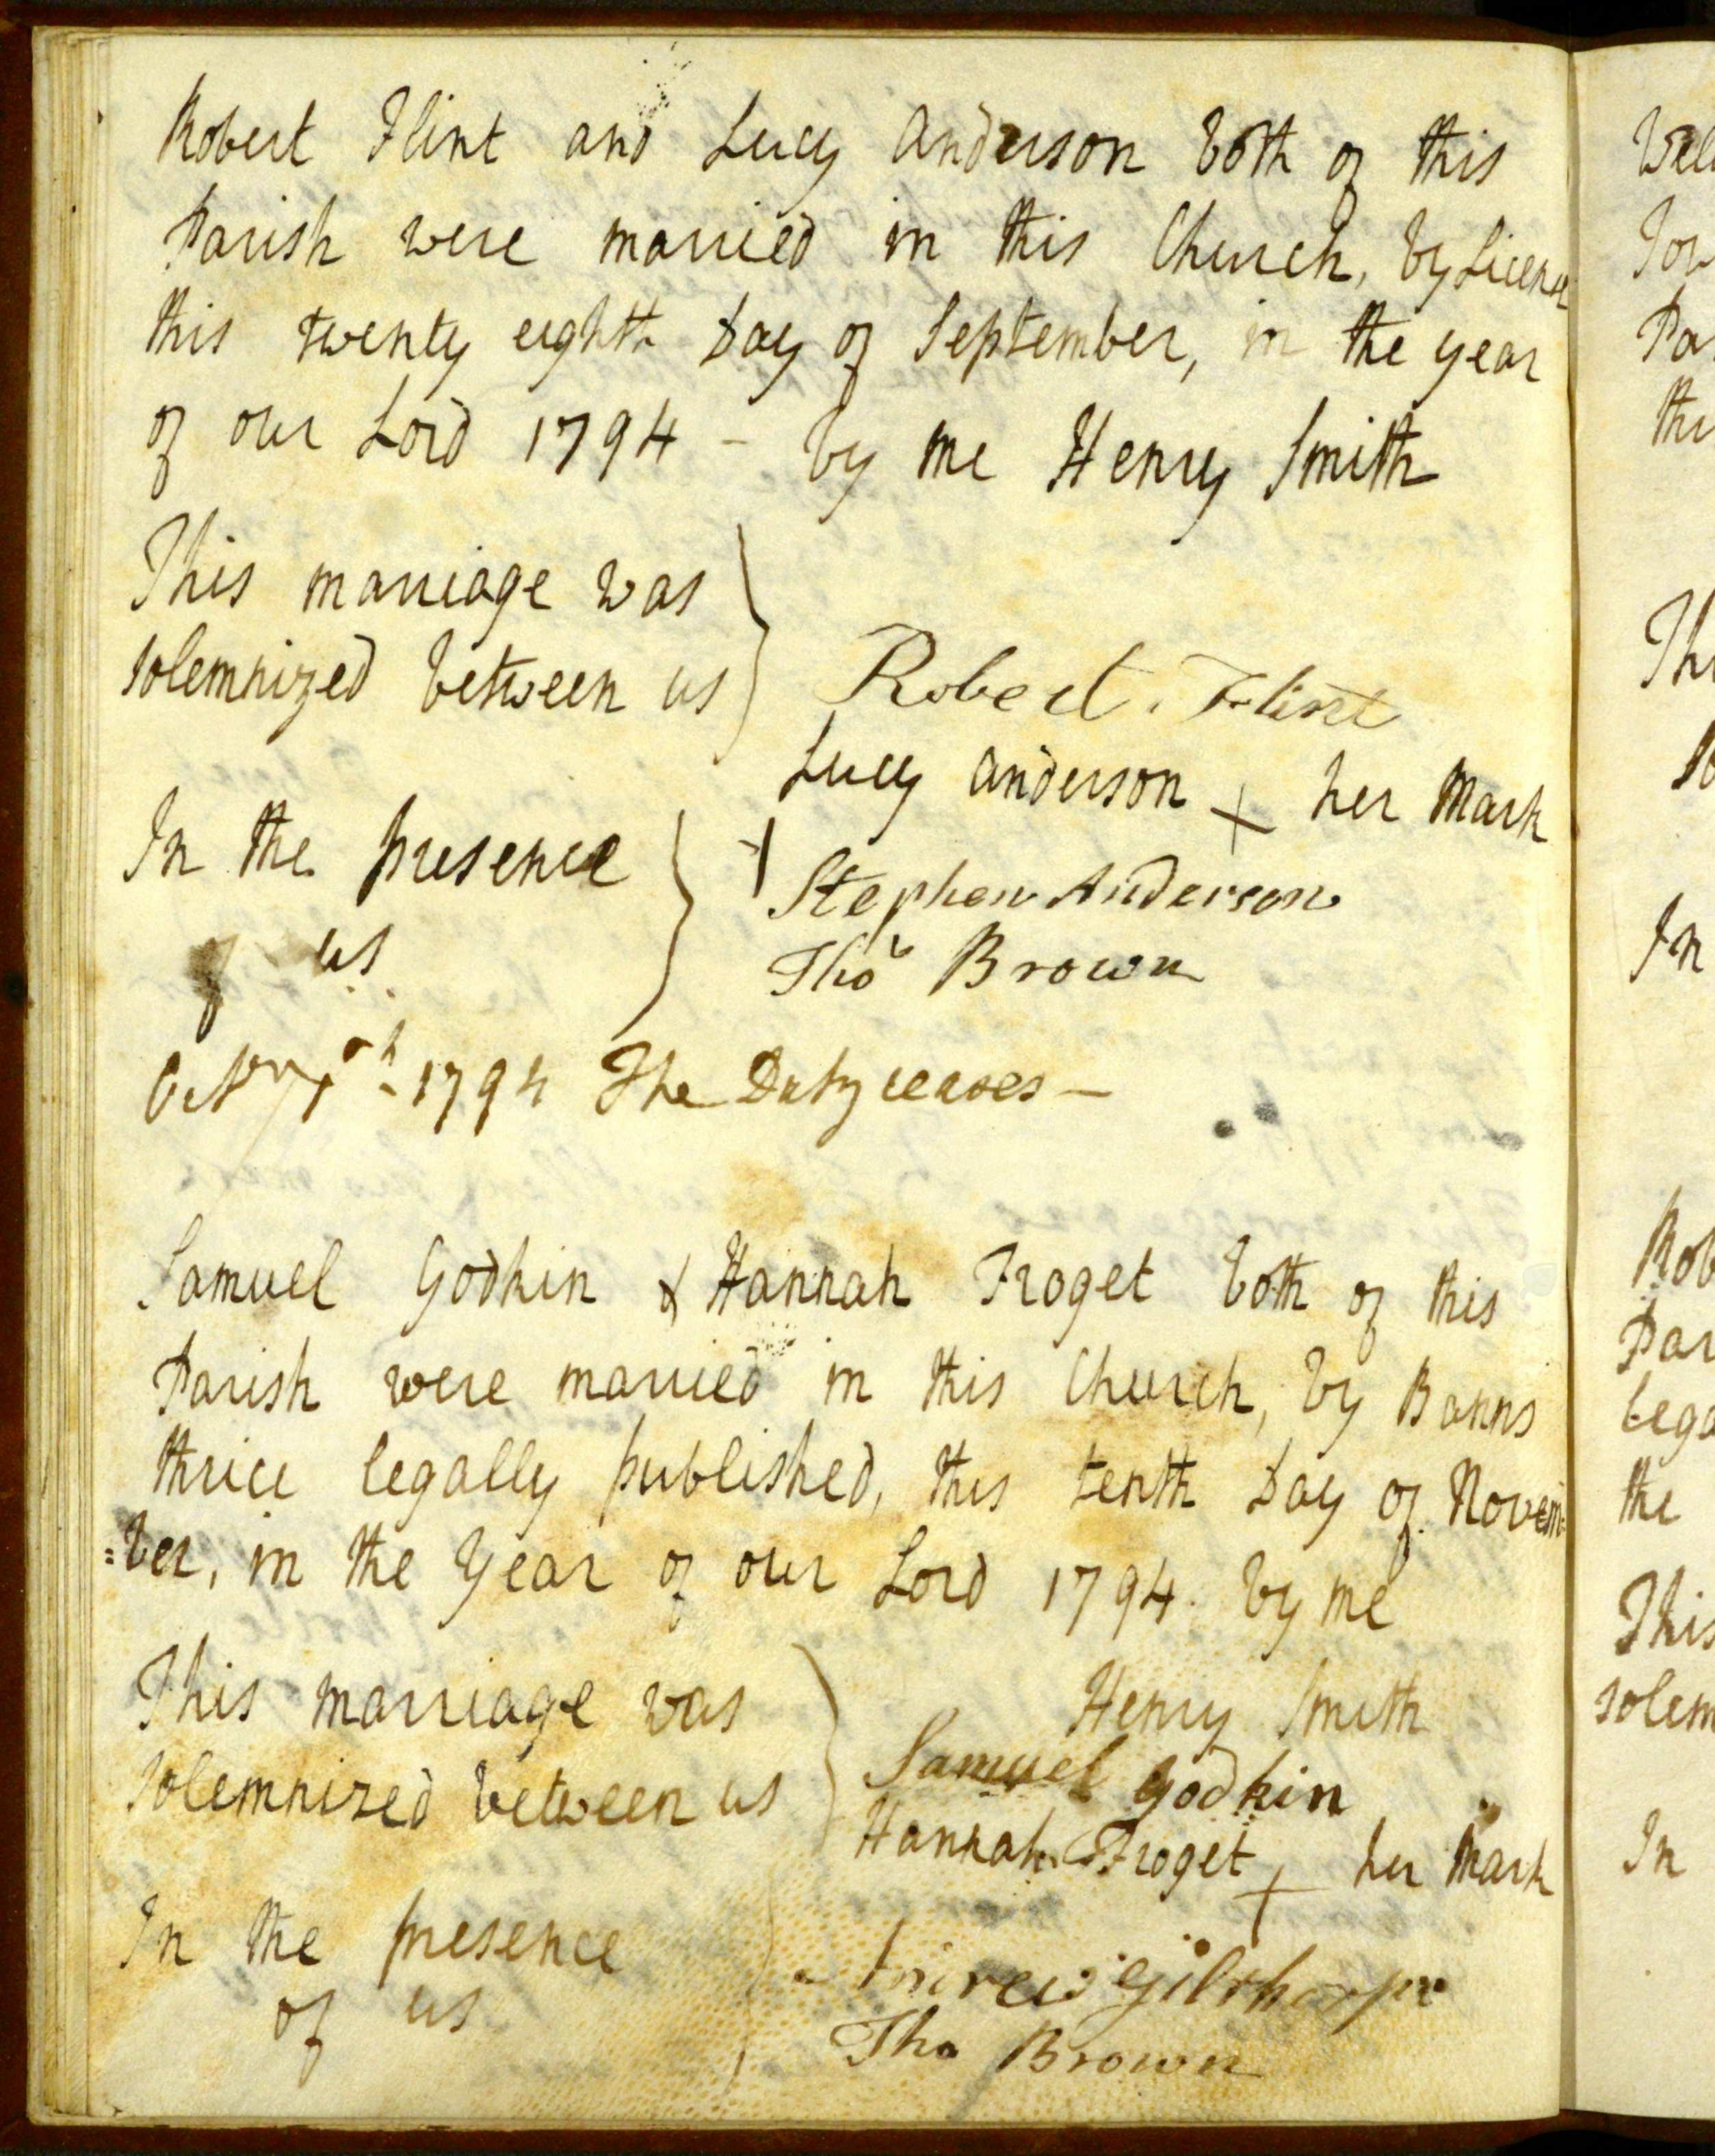 Robert Flint and Lucy Anderson both of this
Parish were married in this Church, by Licence
this twenty eighth Day of September, in the year
of our Lord 1794 - by me Henry Smith
This marriage was
solemnized between us
Robert. Flint
Lucy Anderson + her Mark
In the presence
of us
Stephen Anderson
Thos Brown
1794 The Duty ceases —
Samuel Godkin & Hannah Froget both of this
Parish were married in this Church, by Banns
thrice legally published, this tenth Day of Novem=
=ber, in the Year of our Lord 1794. by me
Henry Smith
This marriage was
solemnized between us
Samuel Godkin
Hannah Froget + her Mark
In the presence
of us
Andrew Gilthorpe
Tho Brown
Par
the
Th
In
Rob
Par
lega
the
This
solem
In